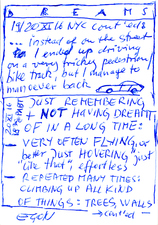 DREAMS
19/20 XI 16 NYC cont'd
... instead of on the street
I ended up driving
on a very friches pedestrian/
bike track, but I manage to
manoever back
20 XI 16
JUST REMEMBERING
+ NOT HAVING DREAMT
OF IN A LONG TIME:
- VERY OFTEN FLYING, or
better JUST HOVERING "just
like that", effortless
- REPEATED MANY TIMES:
CLIMBING UP ALL KIND
OF THINGS: TREES, WALLS
EGON